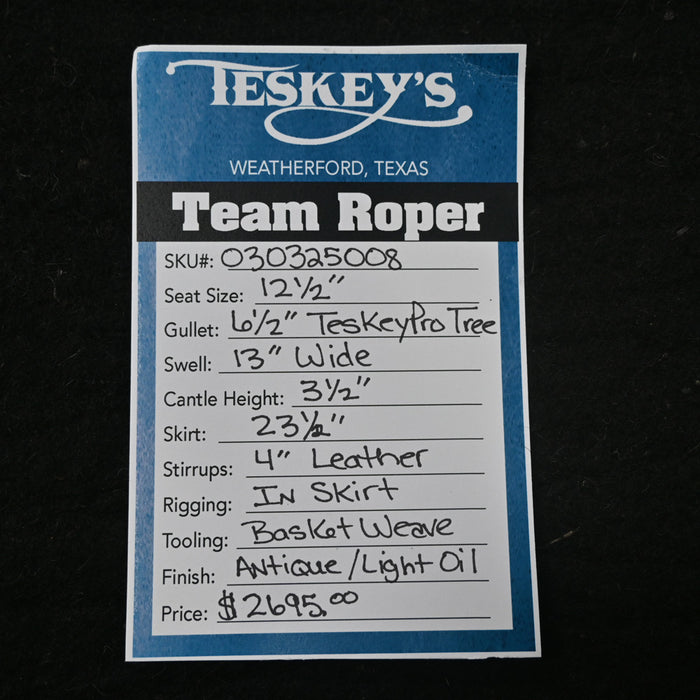 TESKEY'S
WEATHERFORD, TEXAS
Team Roper
SKU#: 030325008
Seat Size: 12 1/2"
Gullet: 6 1/2" TeskeyPro Tree
Swell: 13" Wide
Cantle Height: 3 1/2"
Skirt: 23 1/2"
Stirrups: 4" Leather
Rigging: In Skirt
Tooling: Basket Weave
Finish: Antique/Light Oil
Price: $2695.00